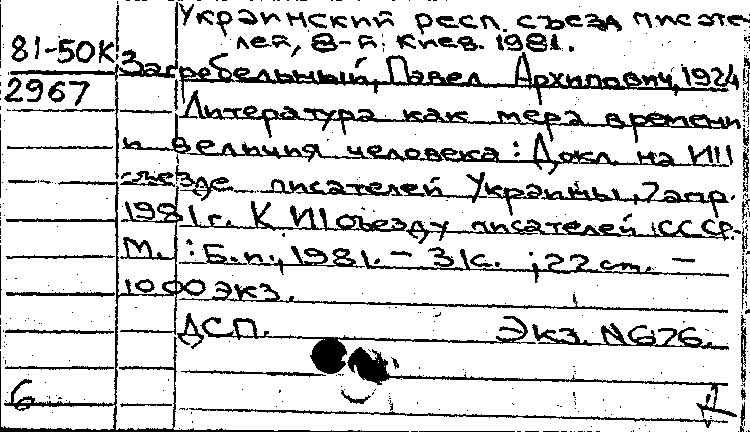 Украинский респ. съезд писате-
лей, 8-й. Киев. 1981.
81-50К
2967
Загребельный, Павел Архипович, 1924
Литература как мера времени
и величия человека : Докл. на VIII
съезде писателей Украины, 7 апр.
1981 г. К VII съезду писателей СССР.-
М. : Б.и., 1981. - 31с. ; 22 cm. -
1000 экз.
ДСП. Экз. N676.
6